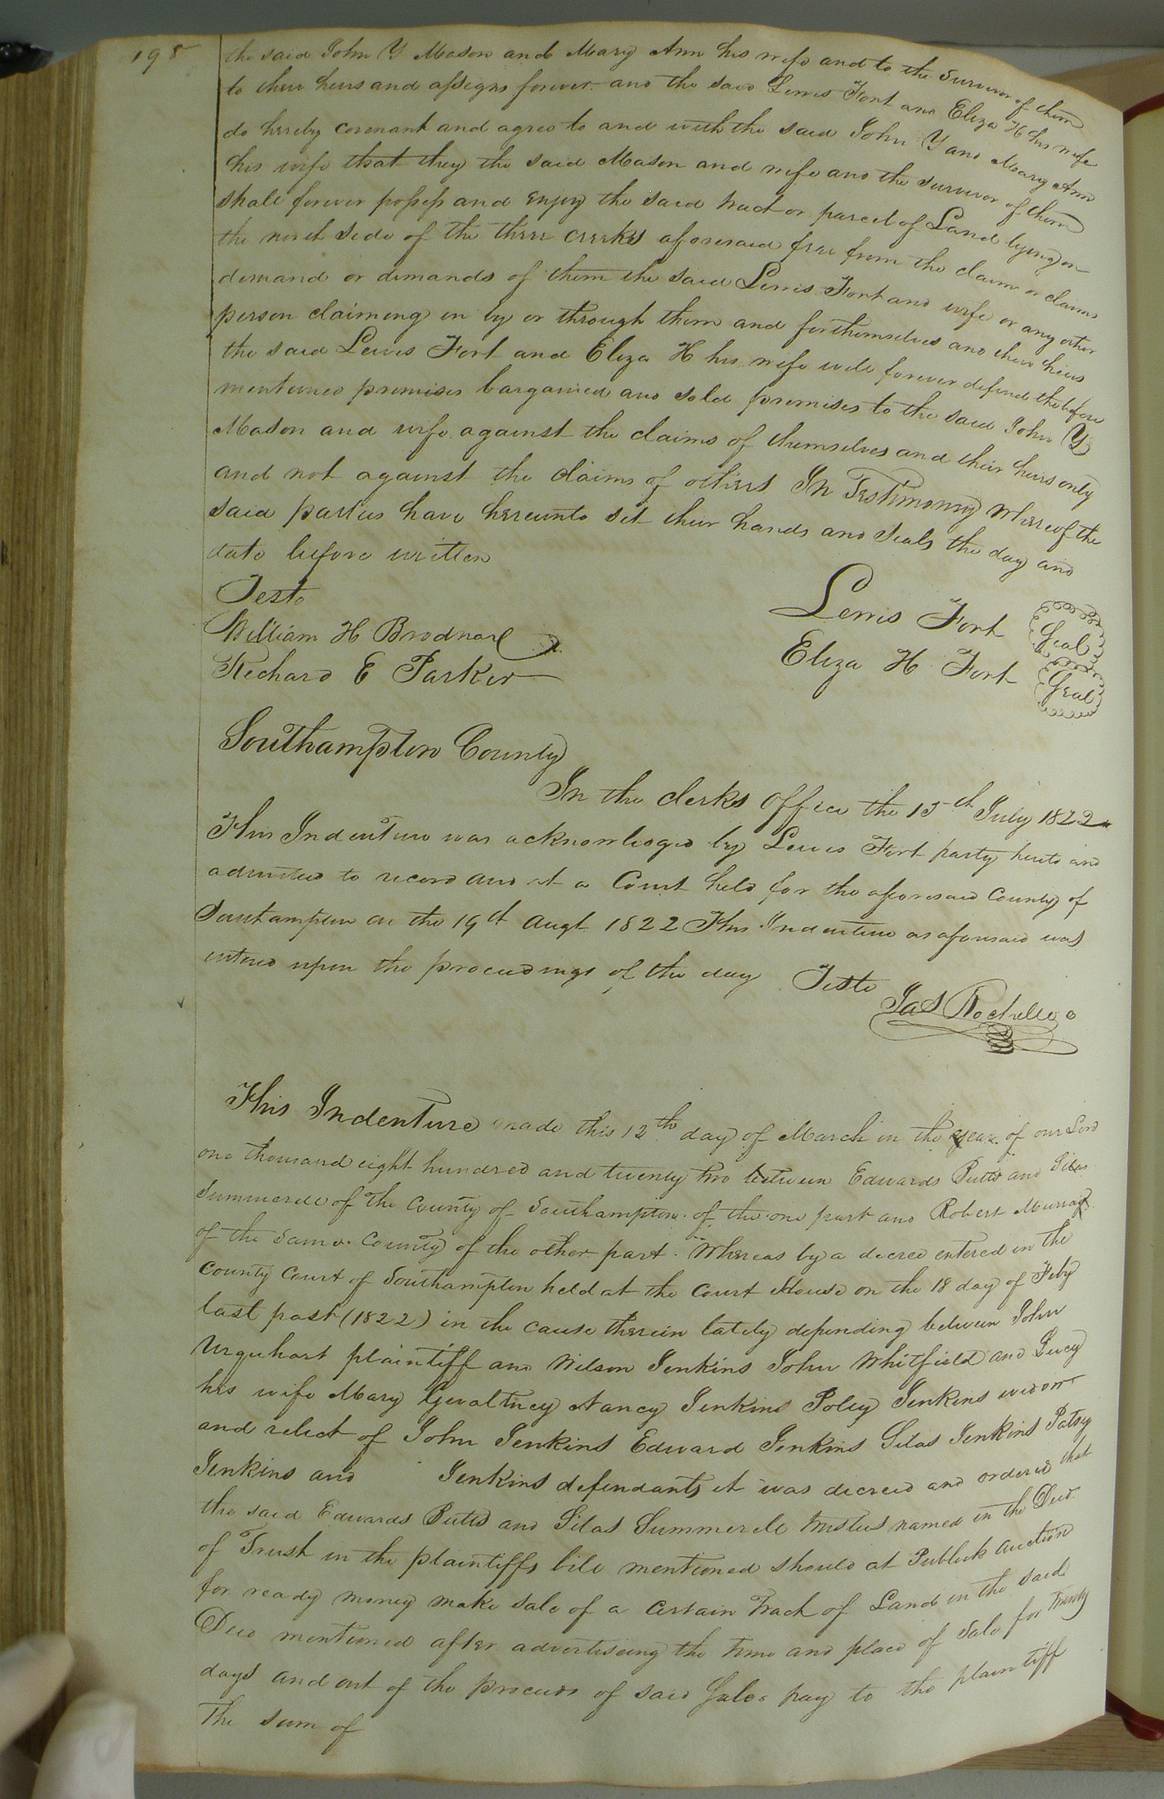 198
the said John Y Mason and Mary Ann his wife and to the Survivor of them
to their heirs and assigns forever and the said Lewis Fort and Eliza H his wife
do hereby covenant and agree to and with the said John Y and Mary Ann
his wife that they the said Mason and wife and the survivor of them
shall forever possess and enjoy the said tract or parcel of Land lying on
the north side of the three creeks aforesaid free from the claim or claims
demand or demands of them the said Lewis Fort and wife or any other
person claiming in by or through them and for themselves and their heirs
the said Lewis Fort and Eliza H his wife will forever defend the before
mentioned premises bargained and sold premises to the said John Y
Mason and wife against the claims of themselves and their heirs only
and not against the claims of others In Testimony whereof the
said parties have hereunto set their hands and seals the day and
date before written
Teste
William H Brodnax
Richard E Parker
Lewis Fort Seal
Eliza H Fort Seal
Southampton County
In the clerks office the 15th July 1822
This Indenture was acknowledged by Lewis Fort party hereto and
admitted to record and at a Court held for the aforesaid County of
Southampton on the 19th Augt 1822 This Indenture as aforesaid was
entered upon the proceedings of the day Teste
Jas Rochelle
This Indenture made this 12th day of March in the year of our Lord
one thousand eight hundred and twenty two between Edwards Butts and Silas
Summerell of the County of Southampton of the one part and Robert Murray
of the same County of the other part. Whereas by a decree entered in the
County Court of Southampton held at the Court House on the 18 day of Feby
last past (1822) in the cause therein lately depending between John
Urquhart plaintiff and Wilson Jenkins John Whitfield and Lucy
his wife Mary Gwaltney Nancy Jenkins Polly Jenkins widow
and relict of John Jenkins Edward Jenkins Silas Jenkins Patsy
Jenkins and Jenkins defendants it was decreed and ordered that
the said Edwards Butts and Silas Summerell trustees named in the Deed
of Trust in the plaintiffs bill mentioned should at Publick auction
for ready money make sale of a certain Tract of Land in the said
Deed mentioned after advertiseing the time and place of Sale for twenty
days and out of the proceeds of said Sale pay to the plaintiff
The sum of